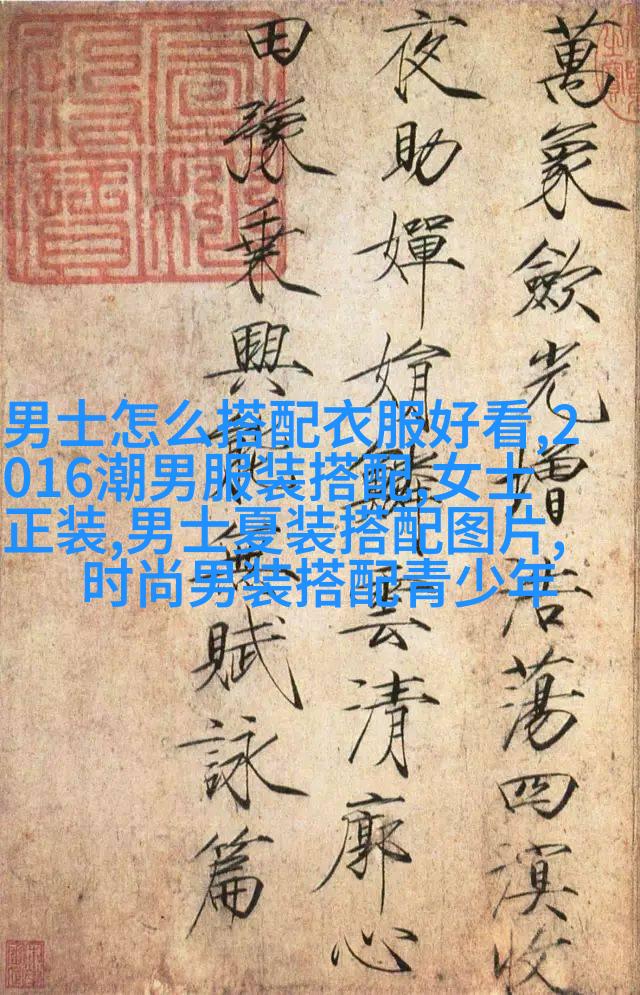 萬象歛光增浩蕩四溟收
夜助嬋娟鱗雲清廓心
田豫乘興能無賦詠篇
男士怎么搭配衣服好看,2
016潮男服装搭配,女士
正装,男士夏装搭配图片,
时尚男装搭配青少年